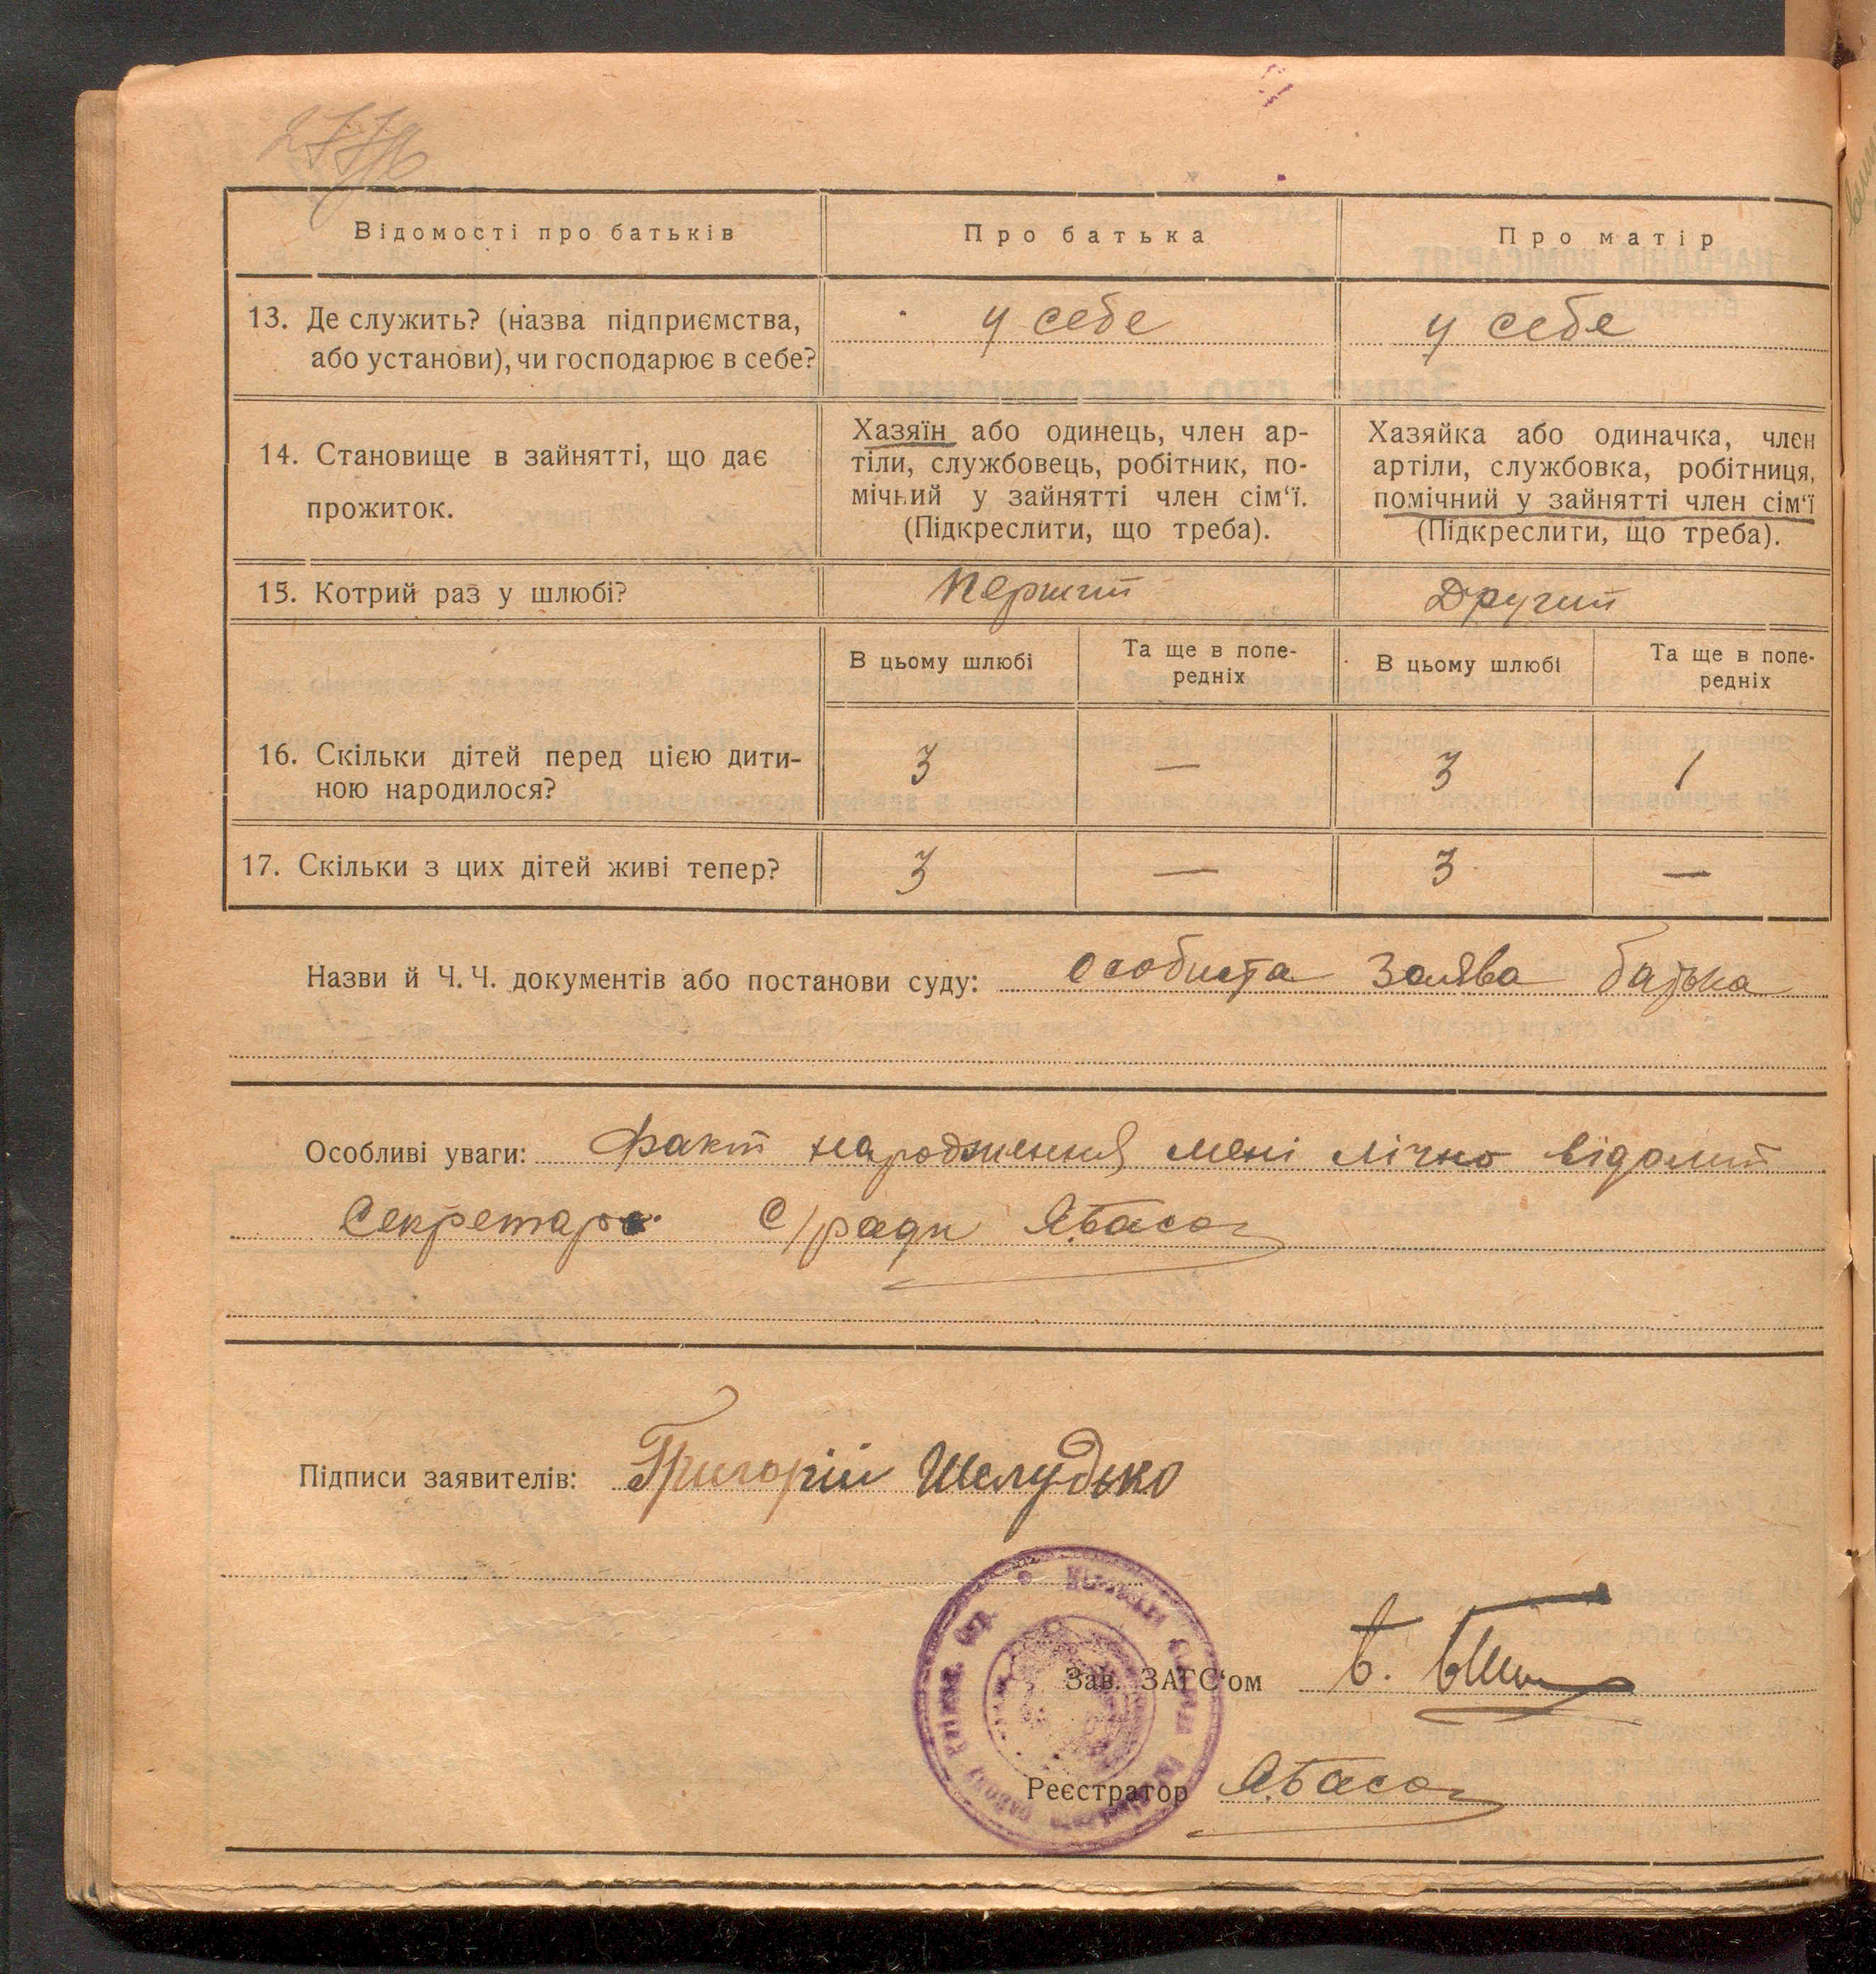 Відомості про батьків
Про батька
Про матір
13. Де служить? (назва підприємства,
або установи), чи господарює в себе?
у себе
у себе
14. Становище в зайнятті, що дає
прожиток.
Хазяїн або одинець, член ар-
тіли, службовець, робітник, по-
мічний у зайнятті член сім‘ї.
(Підкреслити, що треба).
Хазяйка або одиначка, член
артіли, службовка, робітниця,
помічний у зайнятті член сім‘ї
(Підкреслити, що треба).
15. Котрий раз у шлюбі?
Перший
Другий
В цьому шлюбі
Та ще в попе-
редніх
В цьому шлюбі
Та ще в попе-
редніх
16. Скільки дітей перед цією дити-
ною народилося?
3 — 3 1
17. Скільки з цих дітей живі тепер?
3 — 3 —
Назви й Ч. Ч. документів або постанови суду: особиста заява батька
Особливі уваги: Факт народження мені лічно відомий
Секретарь С/ради
Підписи заявителів: Григорій Шелудько
Зав. ЗАГС‘ом
Реєстратор